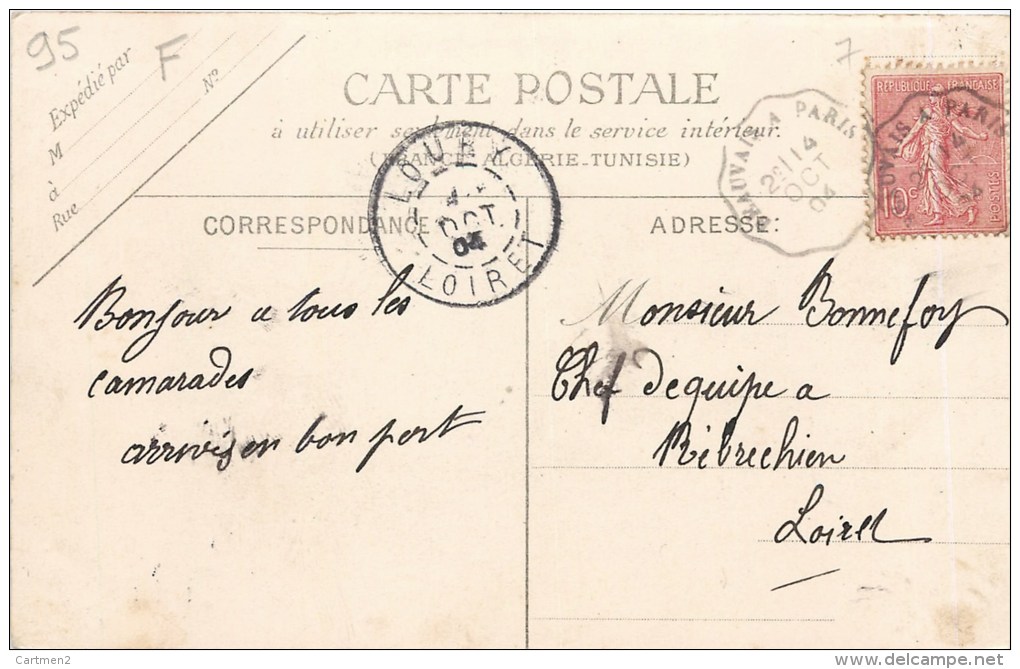 95
F
7
Expédié par
M
à
Rue
N°
CARTE POSTALE
à utiliser seulement dans le service intérieur.
(FRANCE-ALGÉRIE-TUNISIE)
CORRESPONDANCE
ADRESSE:
LOURY
OCT
04
LOIRET
BEAUVAIS A PARIS
14
OCT
04
RÉPUBLIQUE FRANÇAISE
10c
POSTES
Bonjour a tous les
camarades
arrivés en bon port
Monsieur Bonnefoy
Chef dequipe a
Rébréchien
Loiret
Cartmen2
www.delcampe.net